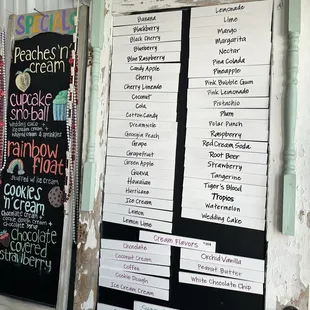 SPECIALS
Peaches 'n'
cream
cupcake
sno-ball
wedding cake
rainbow float
stuffed w/ ice cream
cookies
'n' cream
chocolate
covered
strawberry
Banana
Blackberry
Black Cherry
Blueberry
Blue Raspberry
Candy Apple
Cherry
Cherry Limeade
Coconut
Cola
Cotton Candy
Dreamsicle
Georgia Peach
Grape
Grapefruit
Green Apple
Guava
Hawaiian
Hurricane
Ice Cream
Lemon
Lemon Lime
Lemonade
Lime
Mango
Margarita
Nectar
Pina Colada
Pineapple
Pink Bubble Gum
Pink Lemonade
Pistachio
Plum
Polar Punch
Raspberry
Red Cream Soda
Root Beer
Strawberry
Tangerine
Tiger's Blood
Tropics
Watermelon
Wedding Cake
Cream Flavors
Chocolate
Coconut Cream
Coffee
Cookie Dough
Ice Cream
Orchid Vanilla
Peanut Butter
White Chocolate Chip